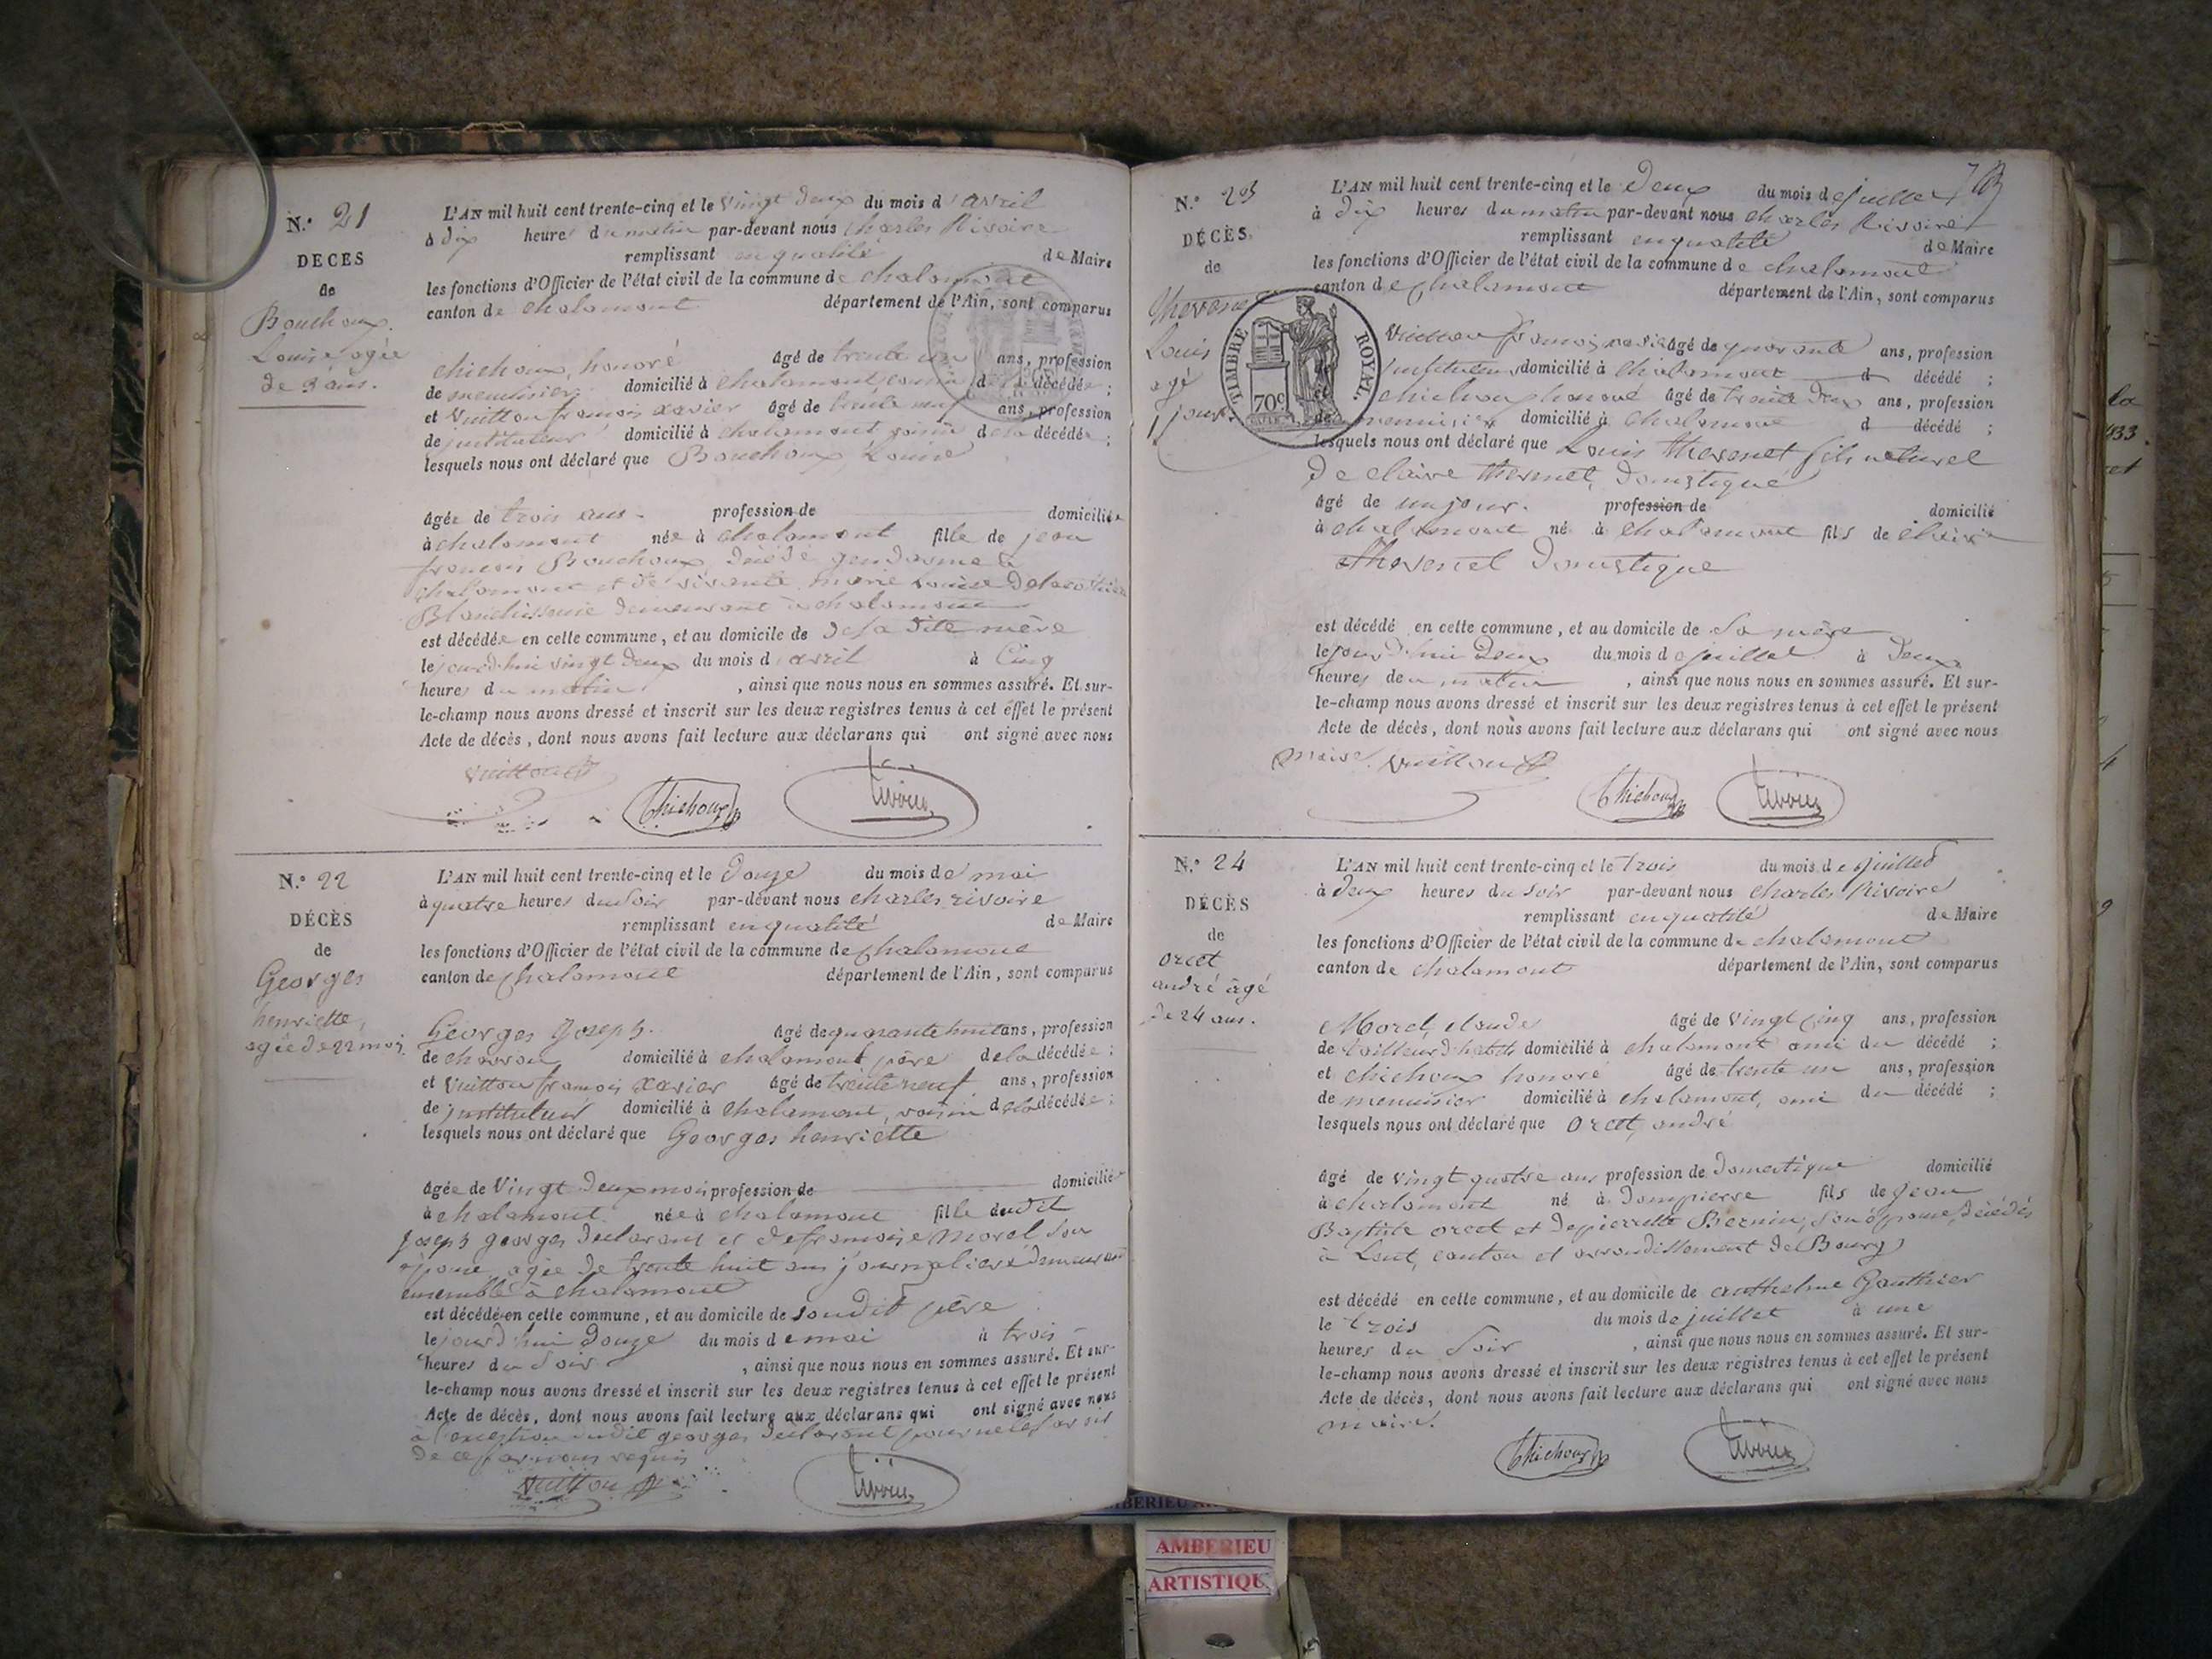 N.° 21
DÉCÈS
de
Bouchoux
Louise agée
de 3 ans.
L'AN mil huit cent trente-cinq et le vingt deux du mois d'avril
à dix heures du matin par-devant nous charles Rivoire
remplissant en qualité de Maire
les fonctions d'Officier de l'état civil de la commune de chalamont
canton de chalamont département de l'Ain, sont comparus
chichoux, honoré âgé de trente un ans, profession
de menuisier domicilié à chalamont, voisin de la décédée ;
et Vuitton françois xavier âgé de trente neuf ans, profession
de instituteur domicilié à chalamont, voisin de la décédée ;
lesquels nous ont déclaré que Bouchoux Louise
âgée de trois ans profession de domiciliée
à chalamont née à chalamont fille de jean
françois Bouchoux, décédé gendarme à
chalamont et de vivante marie Louise
Blanchisseuse demeurant à chalamont
est décédée en cette commune, et au domicile de de sa dite mère
le jourd'hui vingt deux du mois d'avril à Cinq
heures du matin, ainsi que nous nous en sommes assuré. Et sur-
le-champ nous avons dressé et inscrit sur les deux registres tenus à cet effet le présent
Acte de décès, dont nous avons fait lecture aux déclarans qui ont signé avec nous
Vuitton Chichoux Rivoire
N.° 22
DÉCÈS
de
Georges
henriette,
agée de 22 mois
L'AN mil huit cent trente-cinq et le Douze du mois de mai
à quatre heures du Soir par-devant nous charles rivoire
remplissant en qualité de Maire
les fonctions d'Officier de l'état civil de la commune de chalamont
canton de chalamont département de l'Ain, sont comparus
Georges Joseph. âgé de quarante huit ans, profession
de charron domicilié à chalamont père de la décédée ;
et Vuitton françois xavier âgé de trente neuf ans, profession
de instituteur domicilié à chalamont, voisin de la décédée ;
lesquels nous ont déclaré que Georges henriette
âgée de Vingt Deux mois profession de domiciliée
à chalamont née à chalamont fille dudit
Joseph georges declarant et de françoise Morel son
épouse, agée de trente huit ans journaliere demeurant
ensemble à chalamont
est décédée en cette commune, et au domicile de son dit père
le jourd'hui Douze du mois de mai à trois
heures du Soir, ainsi que nous nous en sommes assuré. Et sur-
le-champ nous avons dressé et inscrit sur les deux registres tenus à cet effet le présent
Acte de décès, dont nous avons fait lecture aux déclarans qui ont signé avec nous
à l'exception dudit georges declarant pour ne le savoir
de ce par nous requis
Vuitton Rivoire
N.° 23
DÉCÈS
de
Thevenet
Louis
agé
1 jour.
TIMBRE ROYAL
70c
L'AN mil huit cent trente-cinq et le Deux du mois de juillet
à dix heures du matin par-devant nous charles Rivoire
remplissant en qualité de Maire
les fonctions d'Officier de l'état civil de la commune de chalamont
canton de chalamont département de l'Ain, sont comparus
Vuitton françois xavier âgé de quarante ans, profession
instituteur domicilié à chalamont d décédé ;
et chichoux honoré âgé de trente deux ans, profession
de menuisier domicilié à chalamont d décédé ;
lesquels nous ont déclaré que Louis thevenet fils naturel
De claire thevenet, Domestique
âgé de un jour. profession de domicilié
à chalamont né à chalamont fils de claire
thevenet Domestique
est décédé en cette commune, et au domicile de Sa mère
le jourd'hui Deux du mois de juillet à Deux
heures du matin, ainsi que nous nous en sommes assuré. Et sur-
le-champ nous avons dressé et inscrit sur les deux registres tenus à cet effet le présent
Acte de décès, dont nous avons fait lecture aux déclarans qui ont signé avec nous
maire. Vuitton Chichoux Rivoire
N.° 24
DÉCÈS
de
orcet
andré âgé
de 24 ans.
L'AN mil huit cent trente-cinq et le trois du mois de juillet
à deux heures du Soir par-devant nous charles Rivoire
remplissant en qualité de Maire
les fonctions d'Officier de l'état civil de la commune de chalamont
canton de chalamont département de l'Ain, sont comparus
Morel, claude âgé de Vingt Cinq ans, profession
de tailleur d'habits domicilié à chalamont ami du décédé ;
et chichoux honoré âgé de trente un ans, profession
de menuisier domicilié à chalamont, ami du décédé ;
lesquels nous ont déclaré que orcet, andré
âgé de vingt quatre ans profession de Domestique domicilié
à chalamont né à Dompierre fils de Jean
Baptiste orcet et de pierrette Bernin, son épouse, décédés
à Lent, canton et arrondissement de Bourg
est décédé en cette commune, et au domicile de anthelme Gauthier
le trois du mois de juillet à une
heures du Soir, ainsi que nous nous en sommes assuré. Et sur-
le-champ nous avons dressé et inscrit sur les deux registres tenus à cet effet le présent
Acte de décès, dont nous avons fait lecture aux déclarans qui ont signé avec nous
maire.
Chichoux Rivoire
AMBERIEU
ARTISTIQUE